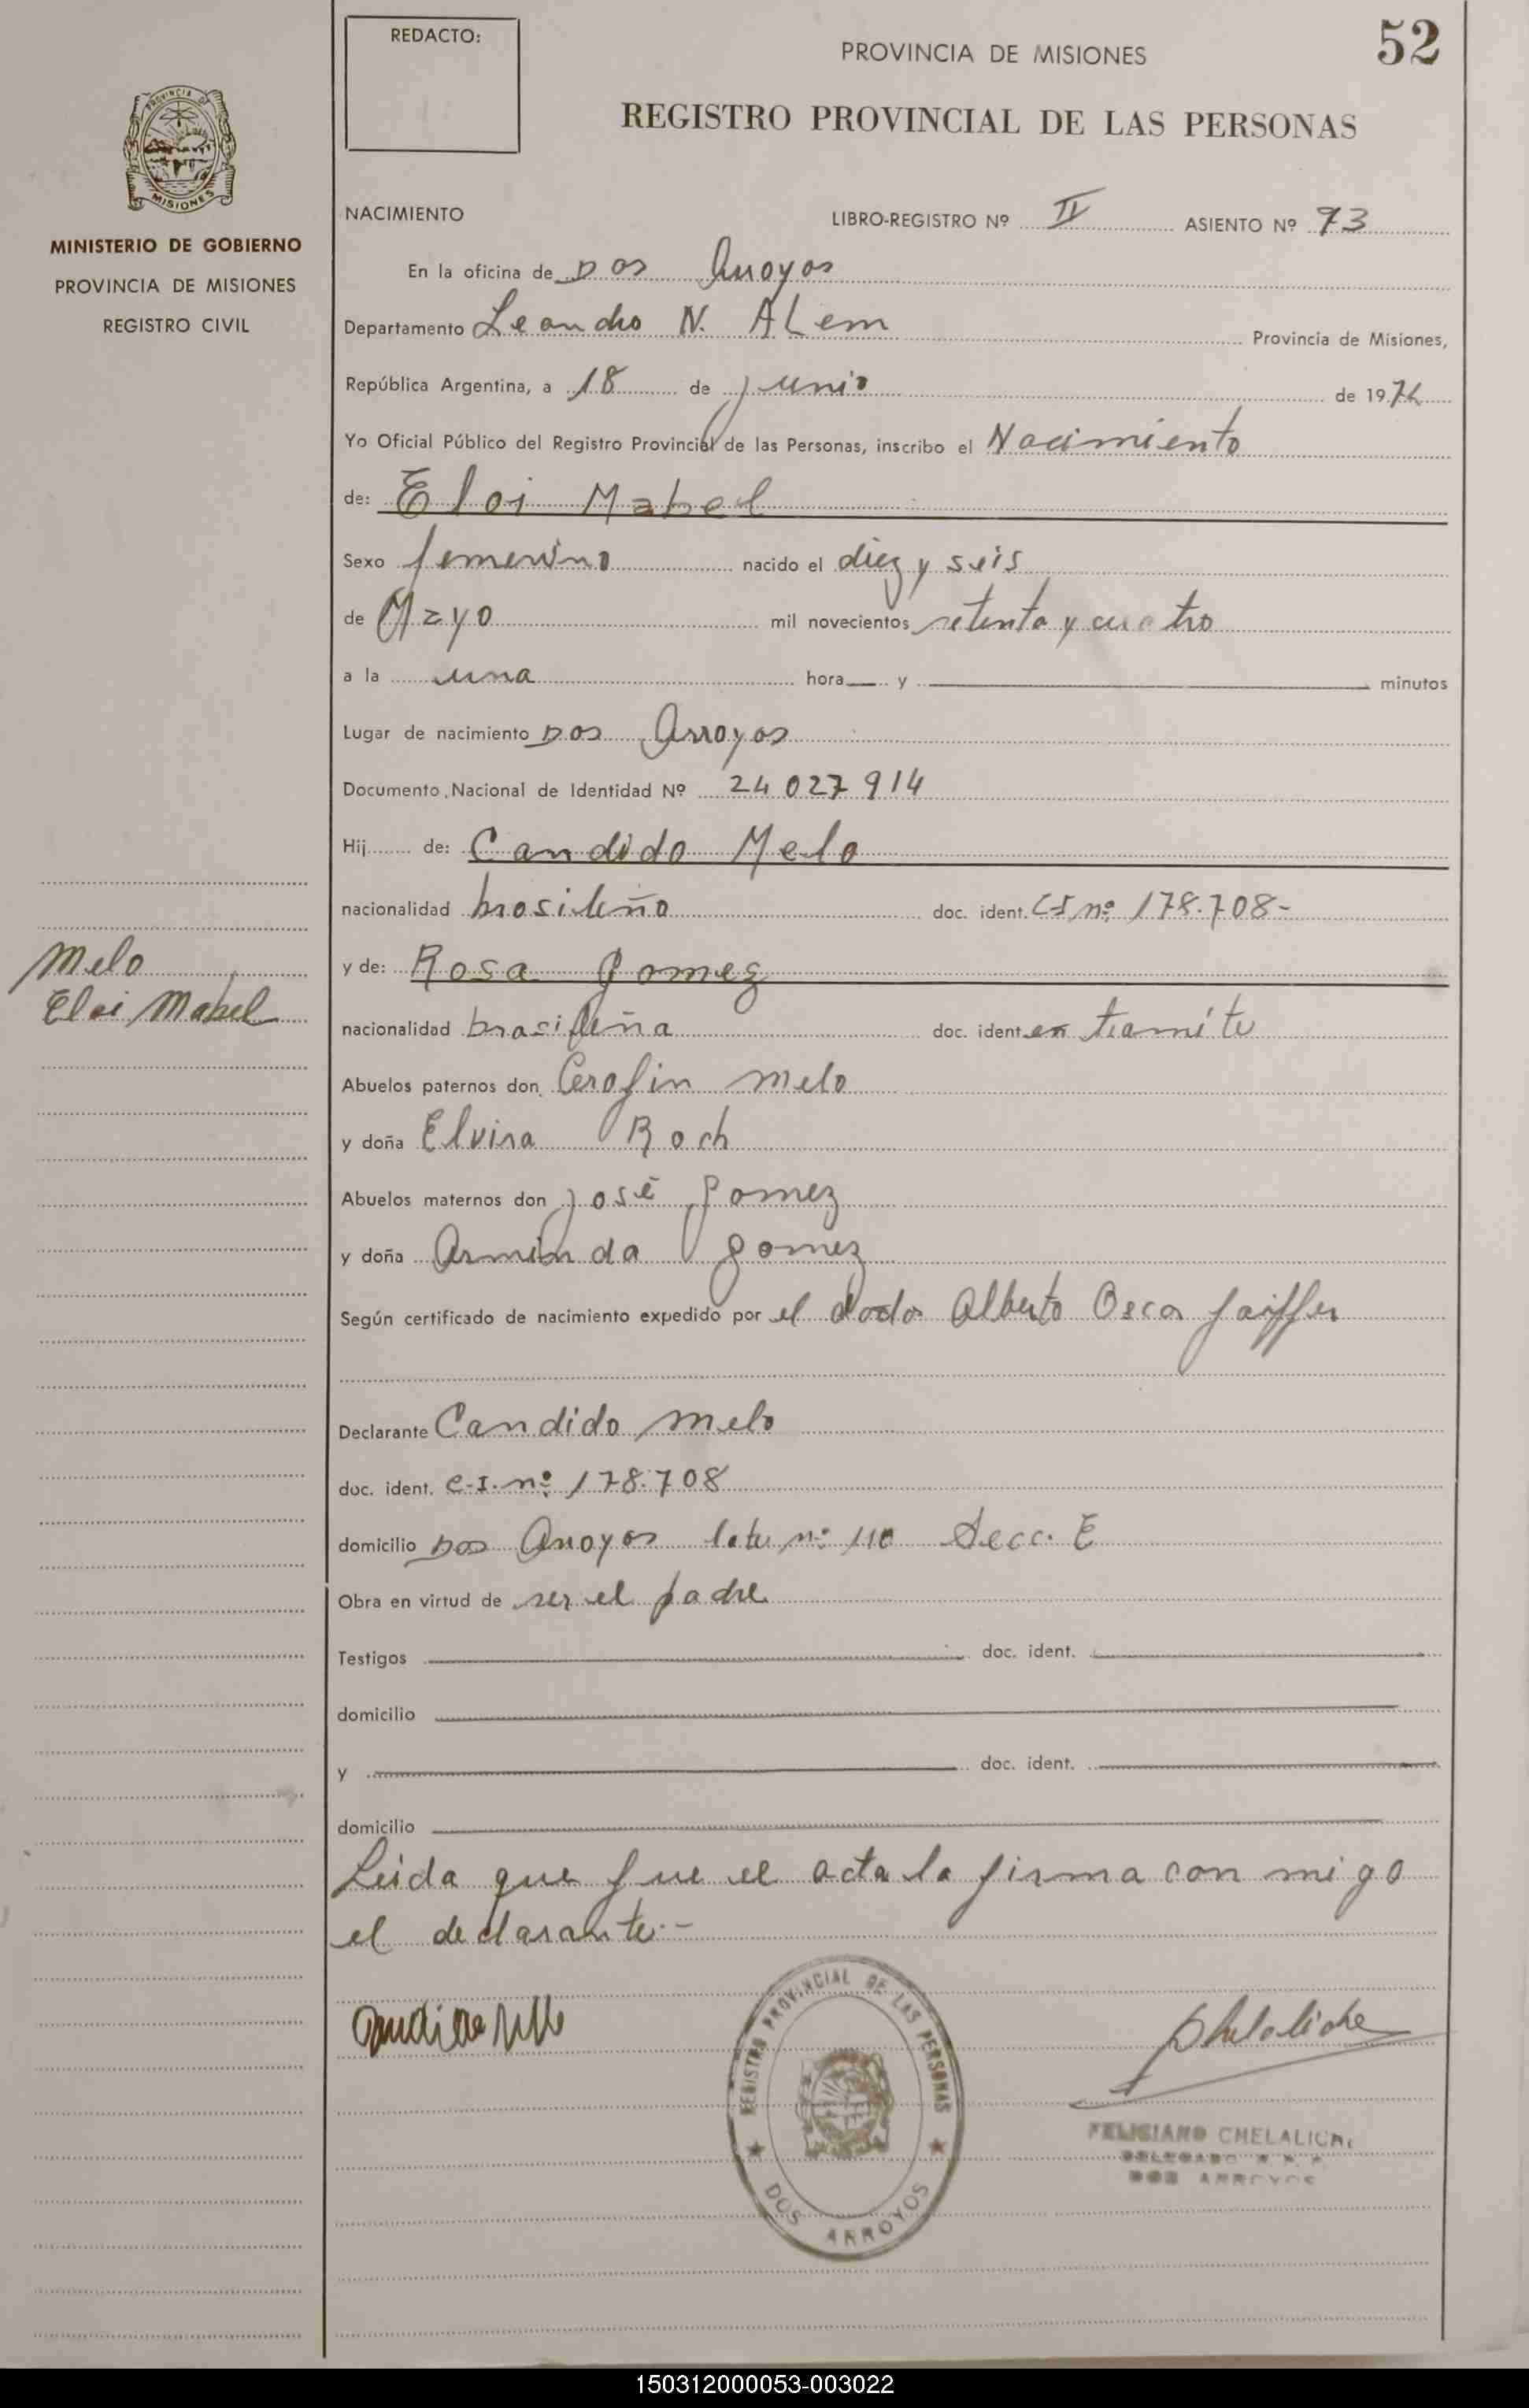 REDACTO:
PROVINCIA DE MISIONES
52
REGISTRO PROVINCIAL DE LAS PERSONAS
PROVINCIA DE
MISIONES
MINISTERIO DE GOBIERNO
PROVINCIA DE MISIONES
REGISTRO CIVIL
NACIMIENTO LIBRO-REGISTRO Nº II ASIENTO Nº 73
En la oficina de Dos Arroyos
Departamento Leandro N. ALem Provincia de Misiones,
República Argentina, a 18 de junio de 1974
Yo Oficial Público del Registro Provincial de las Personas, inscribo el Nacimiento
de: Eloi Mabel
Sexo femenino nacido el diez y seis
de Mayo mil novecientos setenta y cuatro
a la una hora y minutos
Lugar de nacimiento Dos Arroyos
Documento Nacional de Identidad Nº 24 027 914
Hij de: Candido Melo
nacionalidad brasileño doc. ident. CI nº 178.708-
Melo
Eloi Mabel
y de: Rosa Gomez
nacionalidad brasileña doc. ident. en tramite
Abuelos paternos don Cerafin Melo
y doña Elvira Roch
Abuelos maternos don José Gomez
y doña Arminda Gomez
Según certificado de nacimiento expedido por el doctor Alberto Oscar
Declarante Candido Melo
doc. ident. C.I. nº 178.708
domicilio Dos Arroyos lote nº 110 Secc. E
Obra en virtud de ser el padre
Testigos doc. ident.
domicilio
y doc. ident.
domicilio
Leida que fue el acta la firma con migo
el declarante.-
REGISTRO PROVINCIAL DE LAS PERSONAS
DOS ARROYOS
FELICIANO CHELALICHE
DELEGADO R. P. P.
DOS ARROYOS
150312000053-003022